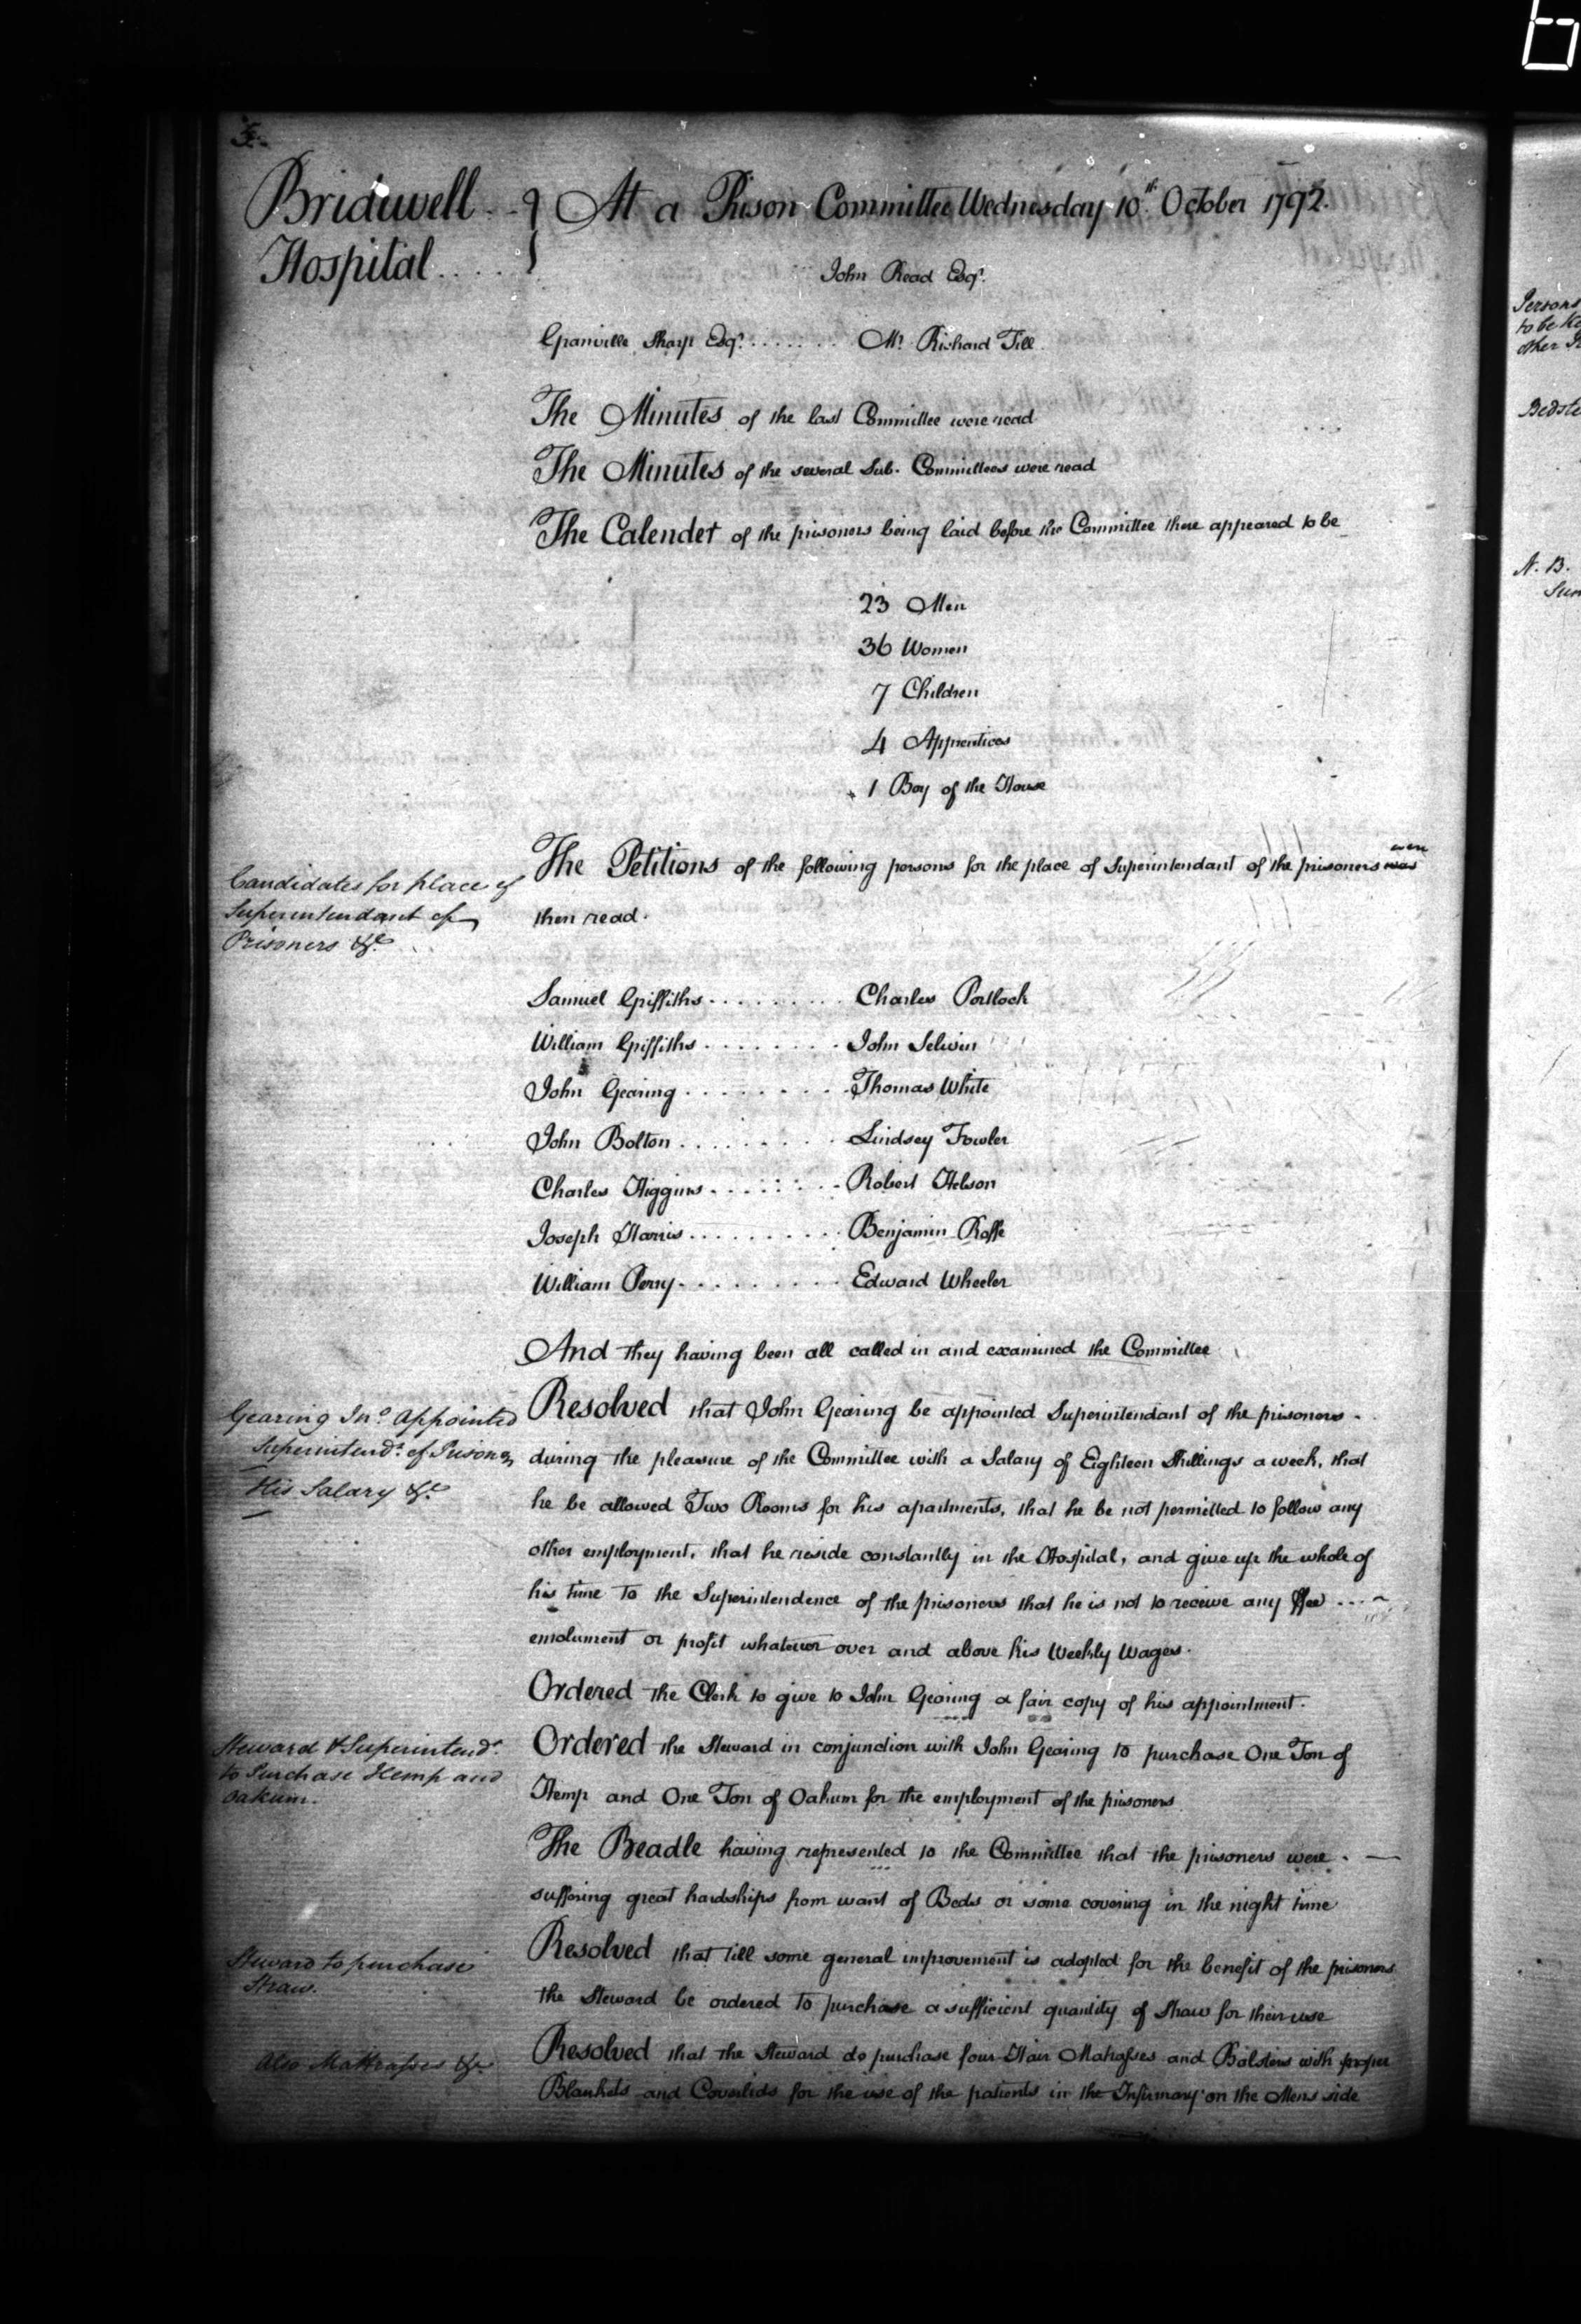 5
Bridewell
Hospital
At a Prison Committee Wednesday 10th. October 1792.
John Read Esqr.
Granville Sharp Esqr. . . . . . . . Mr. Richard Till
The Minutes of the last Committee were read
The Minutes of the several Sub. Committees were read
The Calender of the prisoners being laid before the Committee there appeared to be
23 Men
36 Women
7 Children
4 Apprentices
1 Boy of the House
Candidates for place of
Superintendant of
Prisoners &c.
The Petitions of the following persons for the place of Superintendant of the prisoners were was
then read.
Samuel Griffiths . . . . . . . . Charles Portlock
William Griffiths . . . . . . . . John Selwin
John Gearing . . . . . . . . Thomas White
John Bolton . . . . . . . . . Lindsey Fowler
Charles Higgins . . . . . . . . Robert Helson
Joseph Harris . . . . . . . . . . Benjamin Roffe
William Perry . . . . . . . . . Edward Wheeler
And they having been all called in and examined the Committee
Gearing Jno. Appointed
Superintendt. of Prisoners
His Salary &c.
Resolved that John Gearing be appointed Superintendant of the prisoners
during the pleasure of the Committee with a Salary of Eighteen Shillings a week, that
he be allowed Two Rooms for his apartments, that he be not permitted to follow any
other employment, that he reside constantly in the Hospital, and give up the whole of
his time to the Superintendence of the prisoners that he is not to receive any ffee
emolument or profit whatever over and above his Weekly Wages.
Ordered the Clerk to give to John Gearing a fair copy of his appointment.
Steward & Superintendt.
to Purchase Hemp and
Oakum.
Ordered the Steward in conjunction with John Gearing to purchase One Ton of
Hemp and One Ton of Oakum for the employment of the prisoners
The Beadle having represented to the Committee that the prisoners were
suffering great hardships from want of Beds or some covering in the night time
Steward to purchase
Straw.
Resolved that till some general improvement is adopted for the benefit of the prisoners
the Steward be ordered to purchase a sufficient quantity of Straw for their use
Also Mattrasses &c.
Resolved that the Steward do purchase four Hair Matrasses and Bolsters with proper
Blankets and Coverlids for the use of the patients in the Infirmary on the Mens side
Persons
to be
other
N. B.